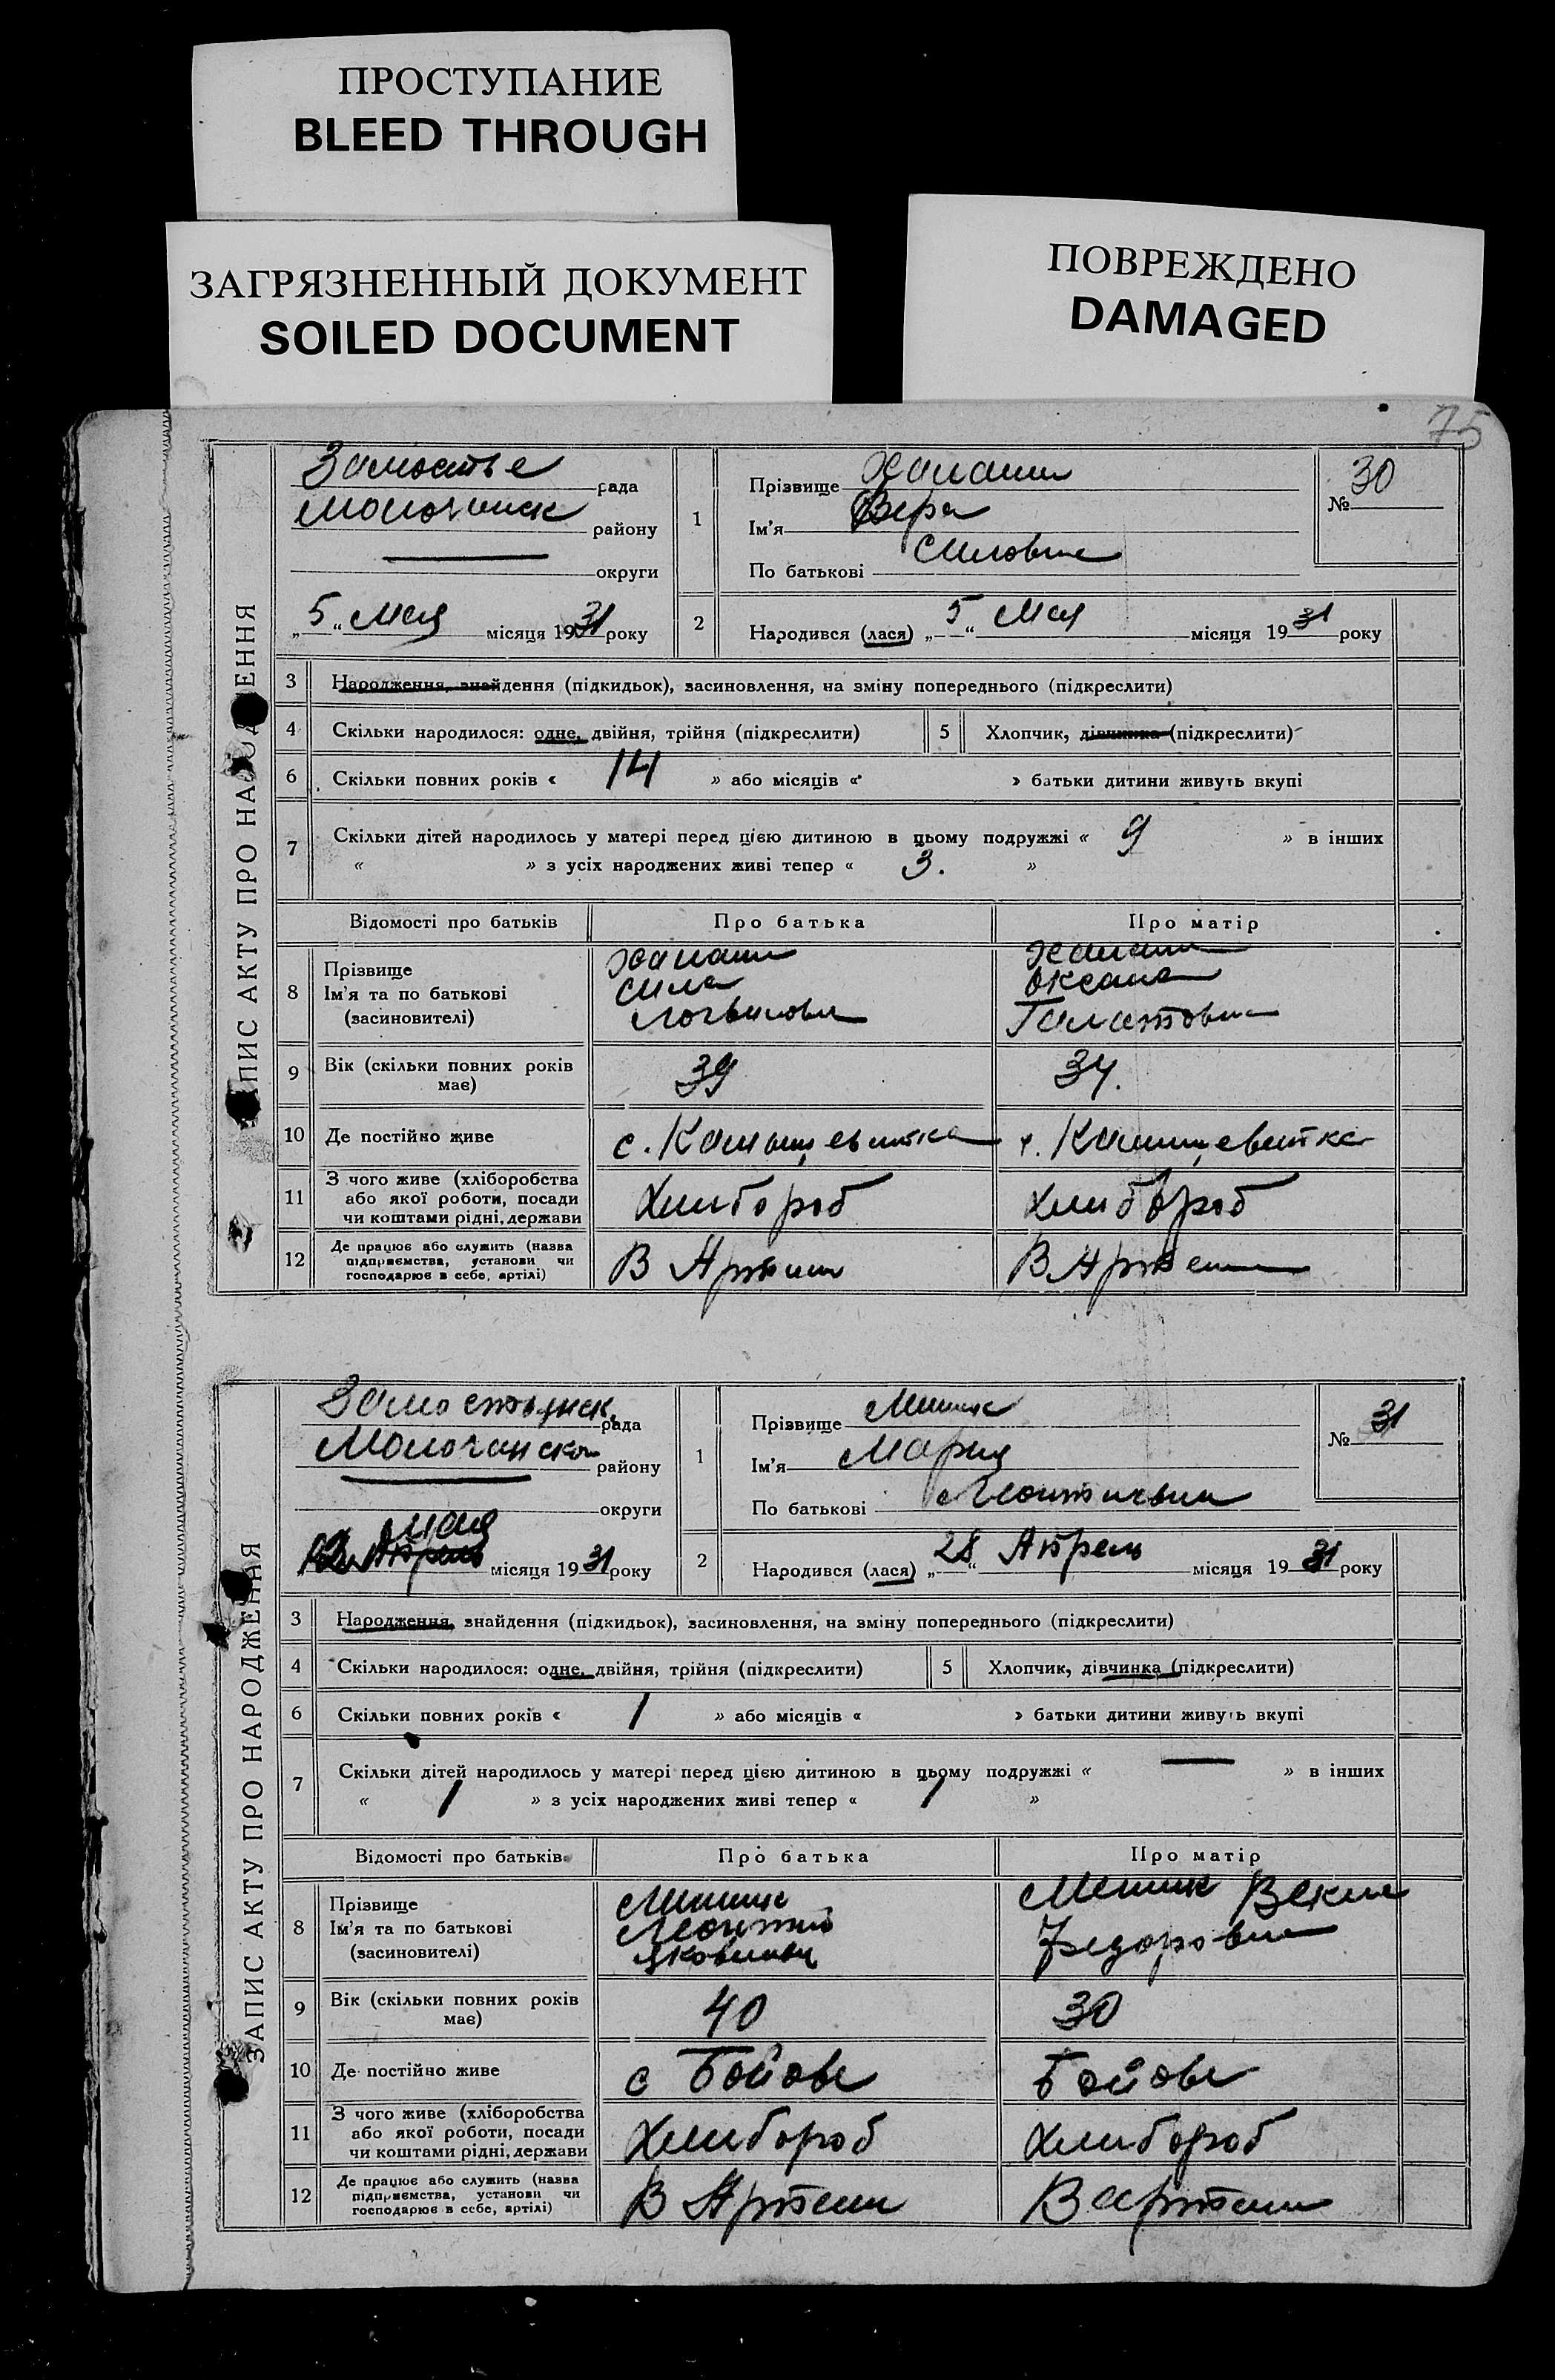 ПРОСТУПАНИЕ
BLEED THROUGH
ЗАГРЯЗНЕННЫЙ ДОКУМЕНТ
SOILED DOCUMENT
ПОВРЕЖДЕНО
DAMAGED
75
ЗАПИС АКТУ ПРО НАРОДЖЕННЯ
Замостье рада
району
округи
„5“ Мая місяця 1931 року
1
Прізвище
Ім'я Вера
По батькові Силовна
№ 30
2
Народився (лася) „5“ Мая місяця 1931 року
3 Народження, знайдення (підкидьок), засиновлення, на зміну попереднього (підкреслити)
4 Скільки народилося: одне, двійня, трійня (підкреслити)
5 Хлопчик, дівчинка (підкреслити)
6 Скільки повних років « 14 » або місяців « » батьки дитини живуть вкупі
7 Скільки дітей народилось у матері перед цією дитиною в цьому подружжі « 9 » в інших
« » з усіх народжених живі тепер « 3. »
Відомості про батьків Про батька Про матір
8 Прізвище
Ім'я та по батькові Сила Оксана
(засновителі)
9 Вік (скільки повних років має) 39 34.
10 Де постійно живе с.
11 З чого живе (хліборобства
або якої роботи, посади Хлибороб Хлибороб
чи коштами рідні, держави
12 Де працює або служить (назва
підприємства, установи чи В Артели В Артели
господарює в себе, артілі)
ЗАПИС АКТУ ПРО НАРОДЖЕННЯ
Замостьянск. рада
Молочанска району
округи
12 Мая місяця 1931 року
1
Прізвище
Ім'я Мария
По батькові
№ 31
2
Народився (лася) „28“ Апрель місяця 1931 року
3 Народження, знайдення (підкидьок), засиновлення, на зміну попереднього (підкреслити)
4 Скільки народилося: одне, двійня, трійня (підкреслити)
5 Хлопчик, дівчинка (підкреслити)
6 Скільки повних років « 1 » або місяців « » батьки дитини живуть вкупі
7 Скільки дітей народилось у матері перед цією дитиною в цьому подружжі « — » в інших
« 1 » з усіх народжених живі тепер « 1 »
Відомості про батьків Про батька Про матір
8 Прізвище
Ім'я та по батькові Федоровна
(засиновителі)
9 Вік (скільки повних років має) 40 30
10 Де постійно живе с Бойове Бойове
11 З чого живе (хліборобства
або якої роботи, посади Хлибороб Хлибороб
чи коштами рідні, держави
12 Де працює або служить (назва
підприємства, установи чи В Артели В артели
господарює в себе, артілі)